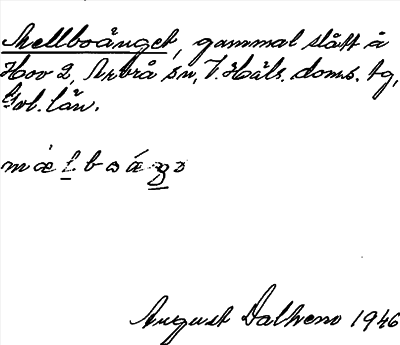 Mellboänget, gammal slått å
Hov 2, Arbrå sn, V. Häls. doms. tg,
Gvl. län.
August Dalheno 1946